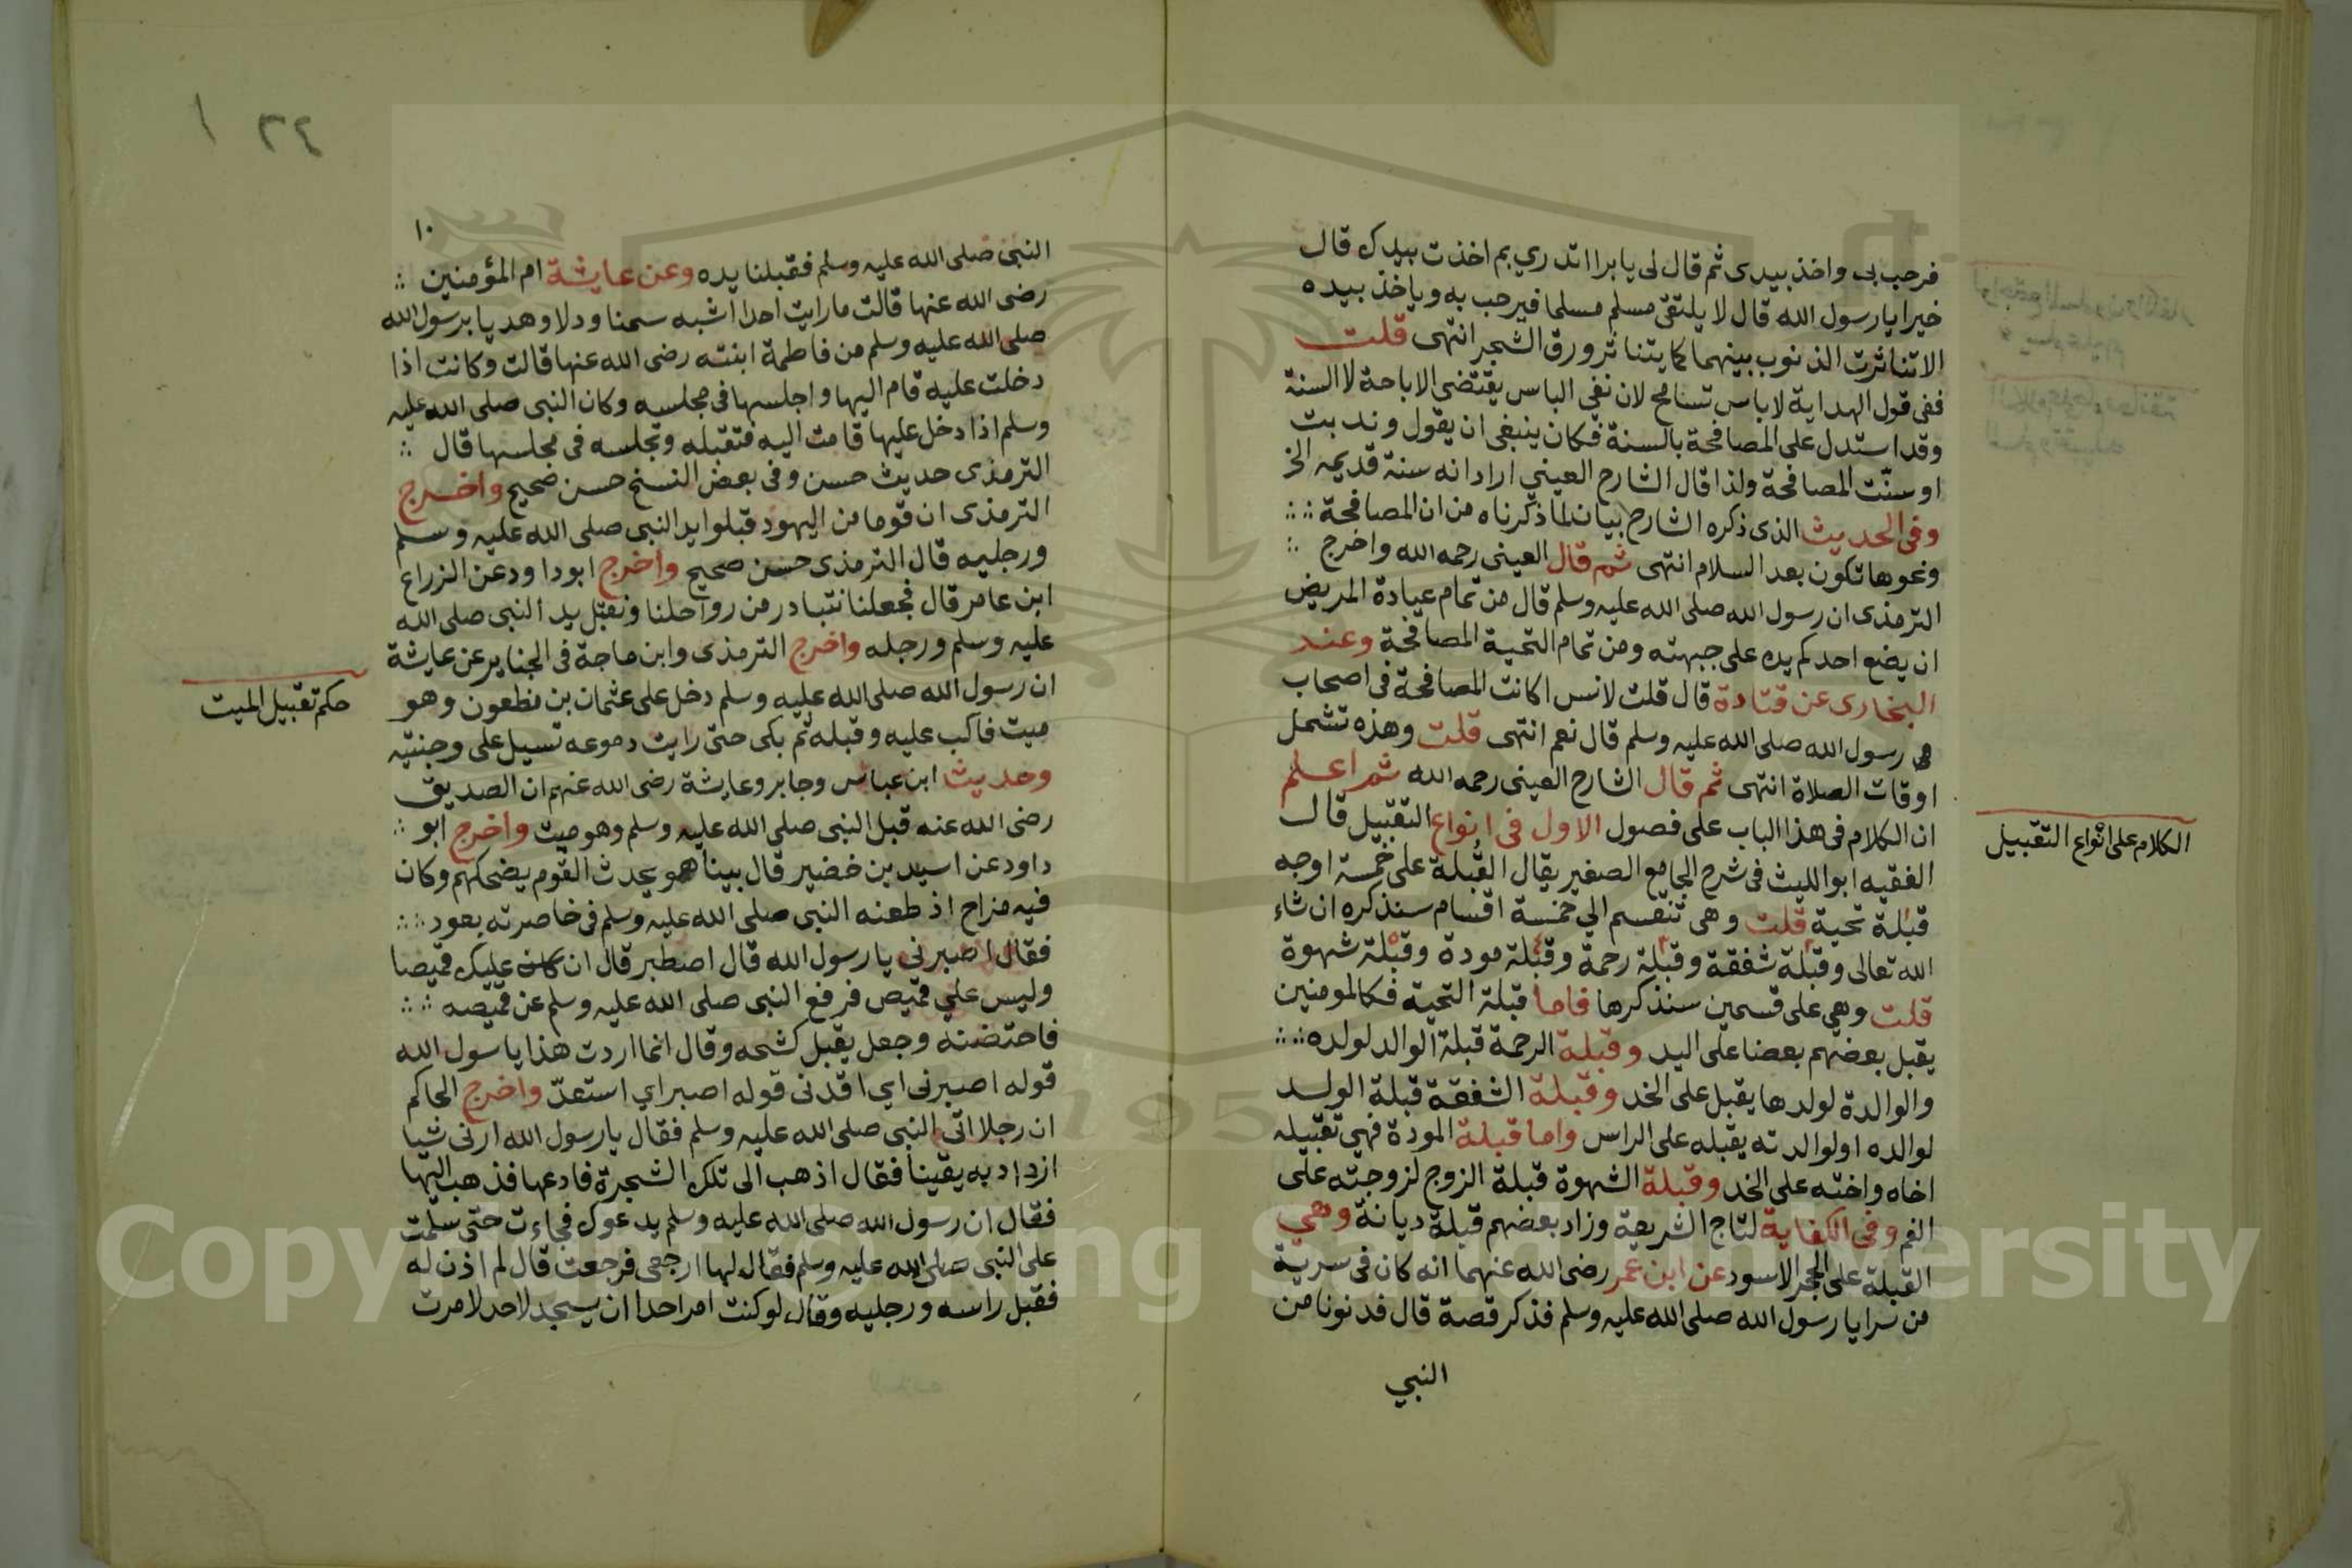 فرحب بى واخذ بيدى ثم قال لى يا برا اتدري بم اخذت بيدك قال
خيرا يا رسول الله قال لا يلتقى مسلم مسلما فيرحب به وياخذ بيده
الا تناثرت الذنوب بينهما كما يتناثر ورق الشجر انتهى قلت
ففى قول الهداية لاباس تسامح لان نفى الباس يقتضى الاباحة لا السنة
وقد استدل على المصافحة بالسنة فكان ينبغى ان يقول وندبت
او سنّت المصافحة ولذا قال الشارح العيني اراد انه سنة قديمه الخ
وفى الحديث الذى ذكره الشارح بيان لما ذكرناه من ان المصافحة
ونحوها تكون بعد السلام انتهى ثم قال العينى رحمه الله واخرج
الترمذى ان رسول الله صلى الله عليه وسلم قال من تمام عيادة المريض
ان يضع احدكم يده على جبهته ومن تمام التحية المصافحة وعند
البخارى عن قتادة قال قلت لانس اكانت المصافحة فى اصحاب
رسول الله صلى الله عليه وسلم قال نعم انتهى قلت وهذه تشمل
اوقات الصلاة انتهى ثم قال الشارح العينى رحمه الله ثم اعلم
ان الكلام فى هذا الباب على فصول الاول فى انواع التقبيل قال
الكلام على انواع التقبيل
الفقيه ابو الليث فى شرح الجامع الصغير يقال القُبلة على خمسة اوجه
قبلة تحية قلت وهى تنقسم الي خمسة اقسام سنذكره ان شاء
الله تعالى وقبلة شفقة وقبلة رحمة وقبلة مودة وقبلة شهوة
قلت وهي على قسمين سنذكرها فاما قبلة التحية فكالمومنين
يقبل بعضهم بعضا على اليد وقبلة الرحمة قبلة الوالد لولده
والوالدة لولدها يقبل على الخد وقبلة الشفقة قبلة الولد
لوالده او لوالدته يقبله على الراس واما قبلة المودة فهي تقبيله
اخاه واخته على الخد وقبلة الشهوة قبلة الزوج لزوجته على
الفم وفى الكفاية لتاج الشريعة وزاد بعضهم قبلة ديانة وهي
القبلة على الحجر الاسود عن ابن عمر رضى الله عنهما انه كان فى سرية
من سرايا رسول الله صلى الله عليه وسلم فذكر قصة قال فدنونا من
النبي
٢٤
١٠
النبى صلى الله عليه وسلم فقبلنا يده وعن عايشة ام المؤمنين
رضى الله عنها قالت ما رايت احدا اشبه سمنا ودلا وهديا برسول الله
صلى الله عليه وسلم من فاطمة ابنته رضى الله عنها قالت وكانت اذا
دخلت عليه قام اليها واجلسها فى مجلسه وكان النبى صلى الله عليه
وسلم اذا دخل عليها قامت اليه فتقبله وتجلسه فى مجلسها قال
الترمذى حديث حسن وفى بعض النسخ حسن صحيح واخرج
الترمذى ان قوما من اليهود قبلوا يد النبى صلى الله عليه وسلم
ورجليه قال الترمذى حسن صحيح واخرج ابو داود عن الزراع
ابن عامر قال فجعلنا نتبادر من رواحلنا ونقبل يد النبى صلى الله
عليه وسلم ورجله واخرج الترمذى وابن ماجة فى الجنايز عن عايشة
ان رسول الله صلى الله عليه وسلم دخل على عثمان بن مظعون وهو
حكم تقبيل الميت
ميت فاكب عليه وقبله ثم بكى حتى رايت دموعه تسيل على وجنتيه
وحديث ابن عباس وجابر وعايشة رضى الله عنهم ان الصديق
رضى الله عنه قبل النبى صلى الله عليه وسلم وهو ميت واخرج ابو
داود عن اسيد بن خضير قال بينا هو يحدث القوم يضحكهم وكان
فيه مزاح اذ طعنه النبى صلى الله عليه وسلم فى خاصرته بعود
فقال اصبرنى يا رسول الله قال اصطبر قال ان عليك قميصا
وليس علي قميص فرفع النبى صلى الله عليه وسلم عن قميصه
فاحتضنه وجعل يقبل كشحه وقال انما اردت هذا يا سول الله
قوله اصبرنى اي اقدنى قوله اصبر اي استعدّ واخرج الحاكم
ان رجلا اتى النبى صلى الله عليه وسلم فقال يا رسول الله ارنى شيا
ازداد به يقينا فقال اذهب الى تلك الشجرة فادعها فذهب اليها
فقال ان رسول الله صلى الله عليه وسلم يدعوك فجاءت حتى سلمت
على النبى صلى الله عليه وسلم فقال لها ارجعى فرجعت قال ثم اذن له
فقبل راسه ورجليه وقال لو كنت امر احدا ان يسجد لاحد لامرت
Copyright © King Saud University
195